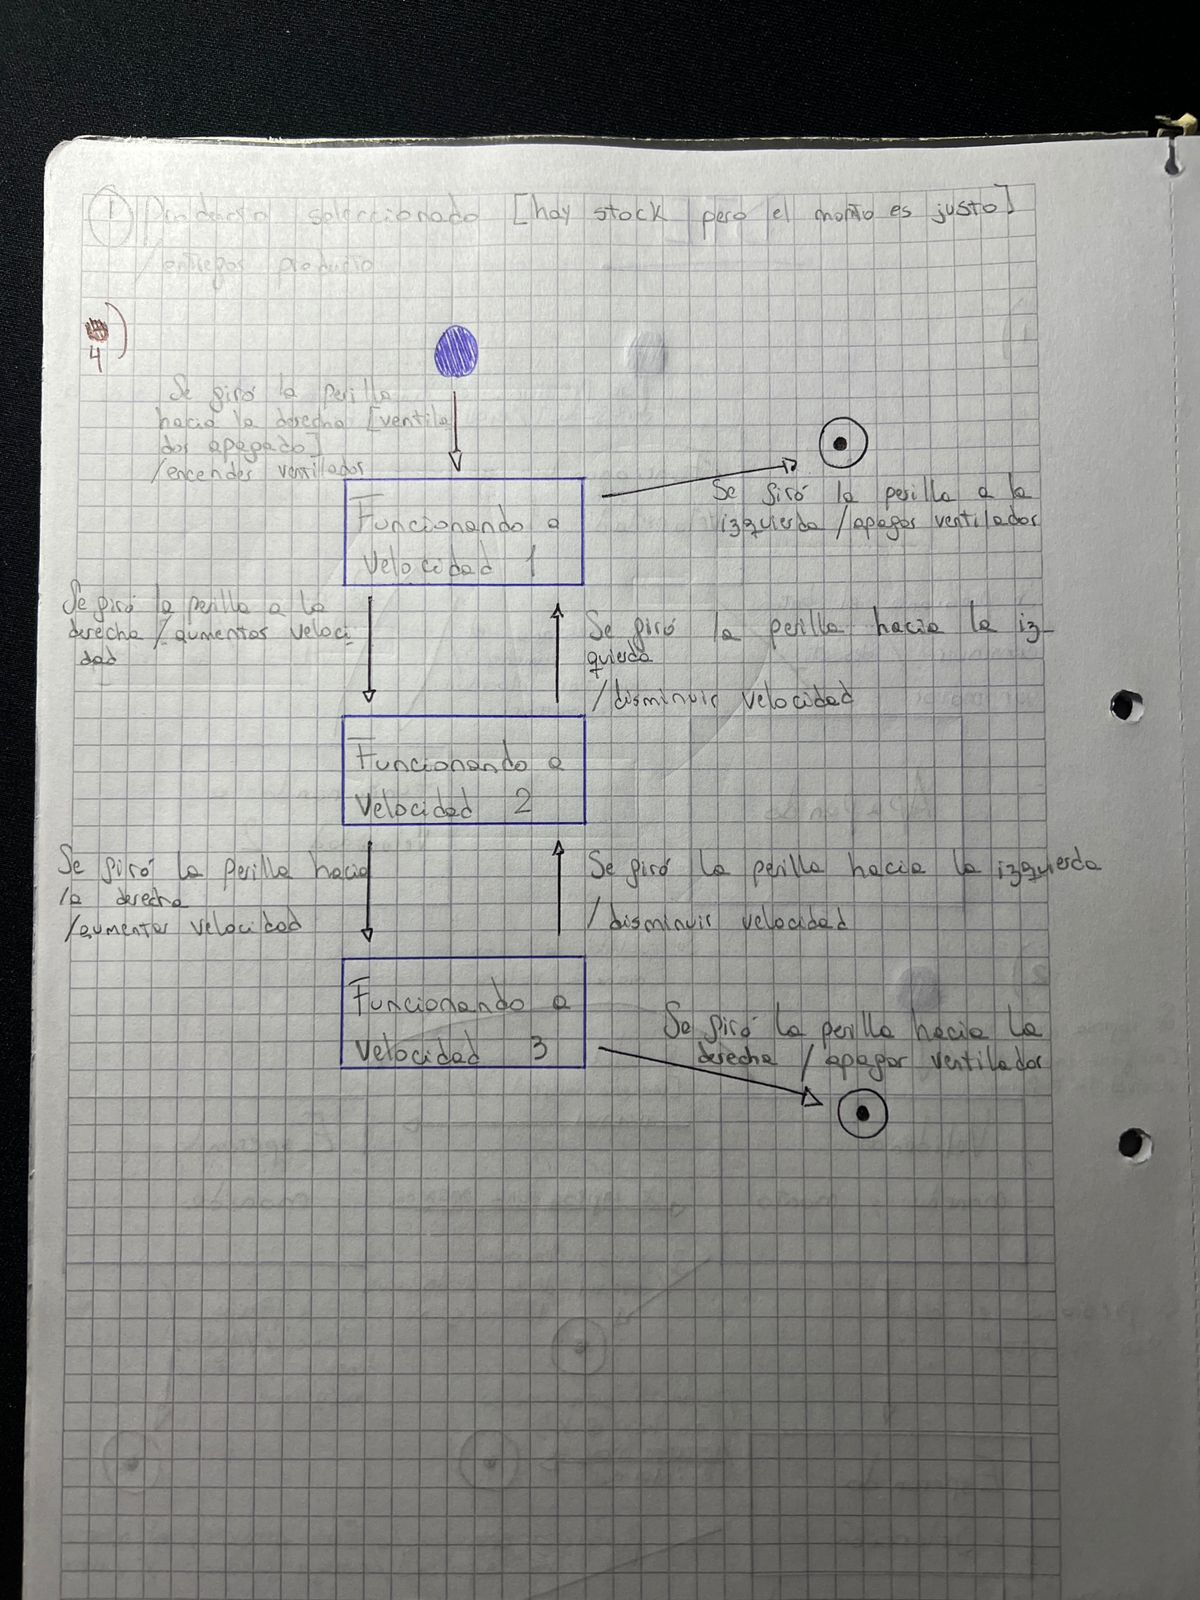 ① Producto seleccionado [hay stock pero el monto es justo]
/entregar producto
4)
Se giró la perilla
hacia la derecha [ventila
dor apagado]
/encender ventilador
Funcionando a
Velocidad 1
Se giró la perilla a la
izquierda /apagar ventilador
Se giró la perilla a la
derecha /aumentar veloci
dad
Se giró la perilla hacia la iz-
quierda
/disminuir velocidad
Funcionando a
Velocidad 2
Se giró la perilla hacia
la derecha
/aumentar velocidad
Se giró la perilla hacia la izquierda
/disminuir velocidad
Funcionando a
Velocidad 3
Se giró la perilla hacia la
derecha /apagar ventilador